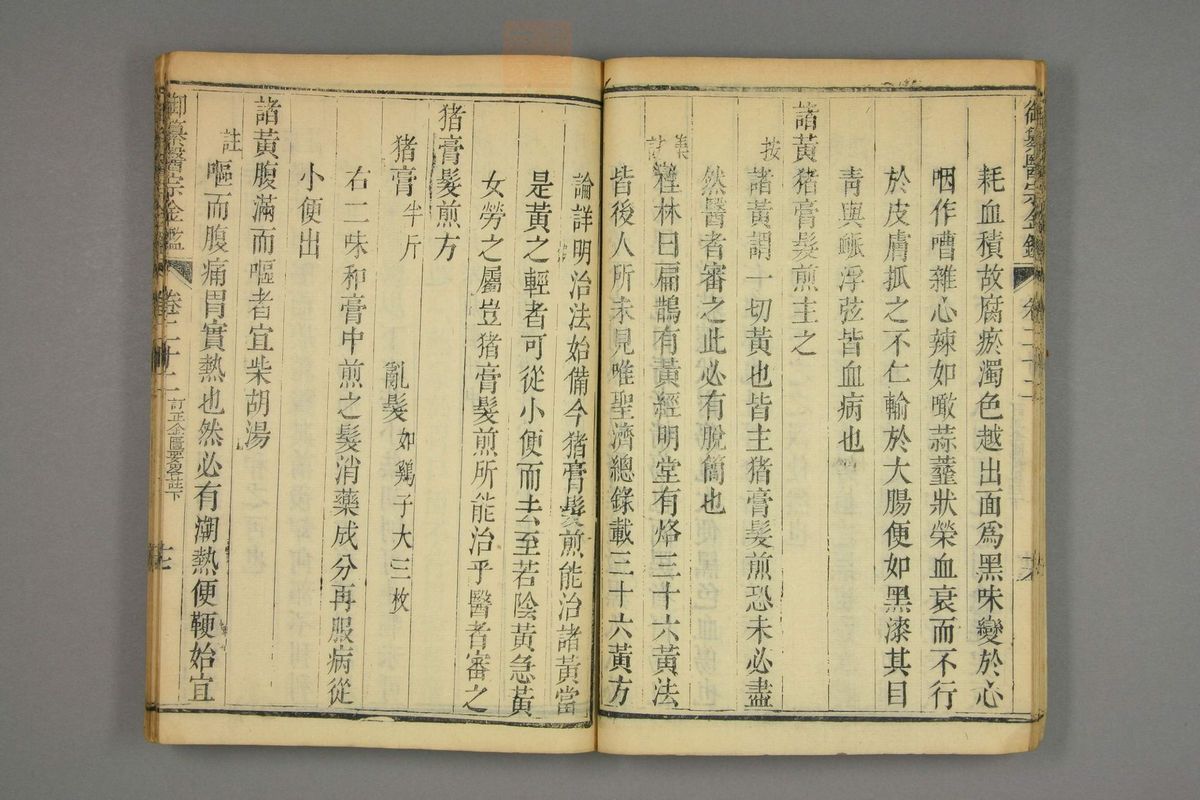 御纂醫宗金鑑 卷二十二
耗血積故腐瘀濁色越出面爲黑味變於心
咽作嘈雜心辣如噉蒜虀狀榮血衰而不行
於皮膚孤之不仁輸於大腸便如黑漆其目
青與脈浮弦皆血病也
諸黃猪膏髮煎主之
按 諸黃謂一切黃也皆主猪膏髮煎恐未必盡
然醫者審之此必有脫簡也
集註 程林曰扁鵲有黃經明堂有烙三十六黃法
皆後人所未見唯聖濟總錄載三十六黃方
論詳明治法始備今猪膏髮煎能治諸黃當
是黃之輕者可從小便而去至若陰黃急黃
女勞之屬豈猪膏髮煎所能治乎醫者審之
猪膏髮煎方
猪膏半斤 亂髮如鷄子大三枚
右二味和膏中煎之髮消藥成分再服病從
小便出
諸黃腹滿而嘔者宜柴胡湯
註 嘔而腹痛胃實熱也然必有潮熱便鞕始宜
御纂醫宗金鑑 卷二十二 訂正金匱要略註下